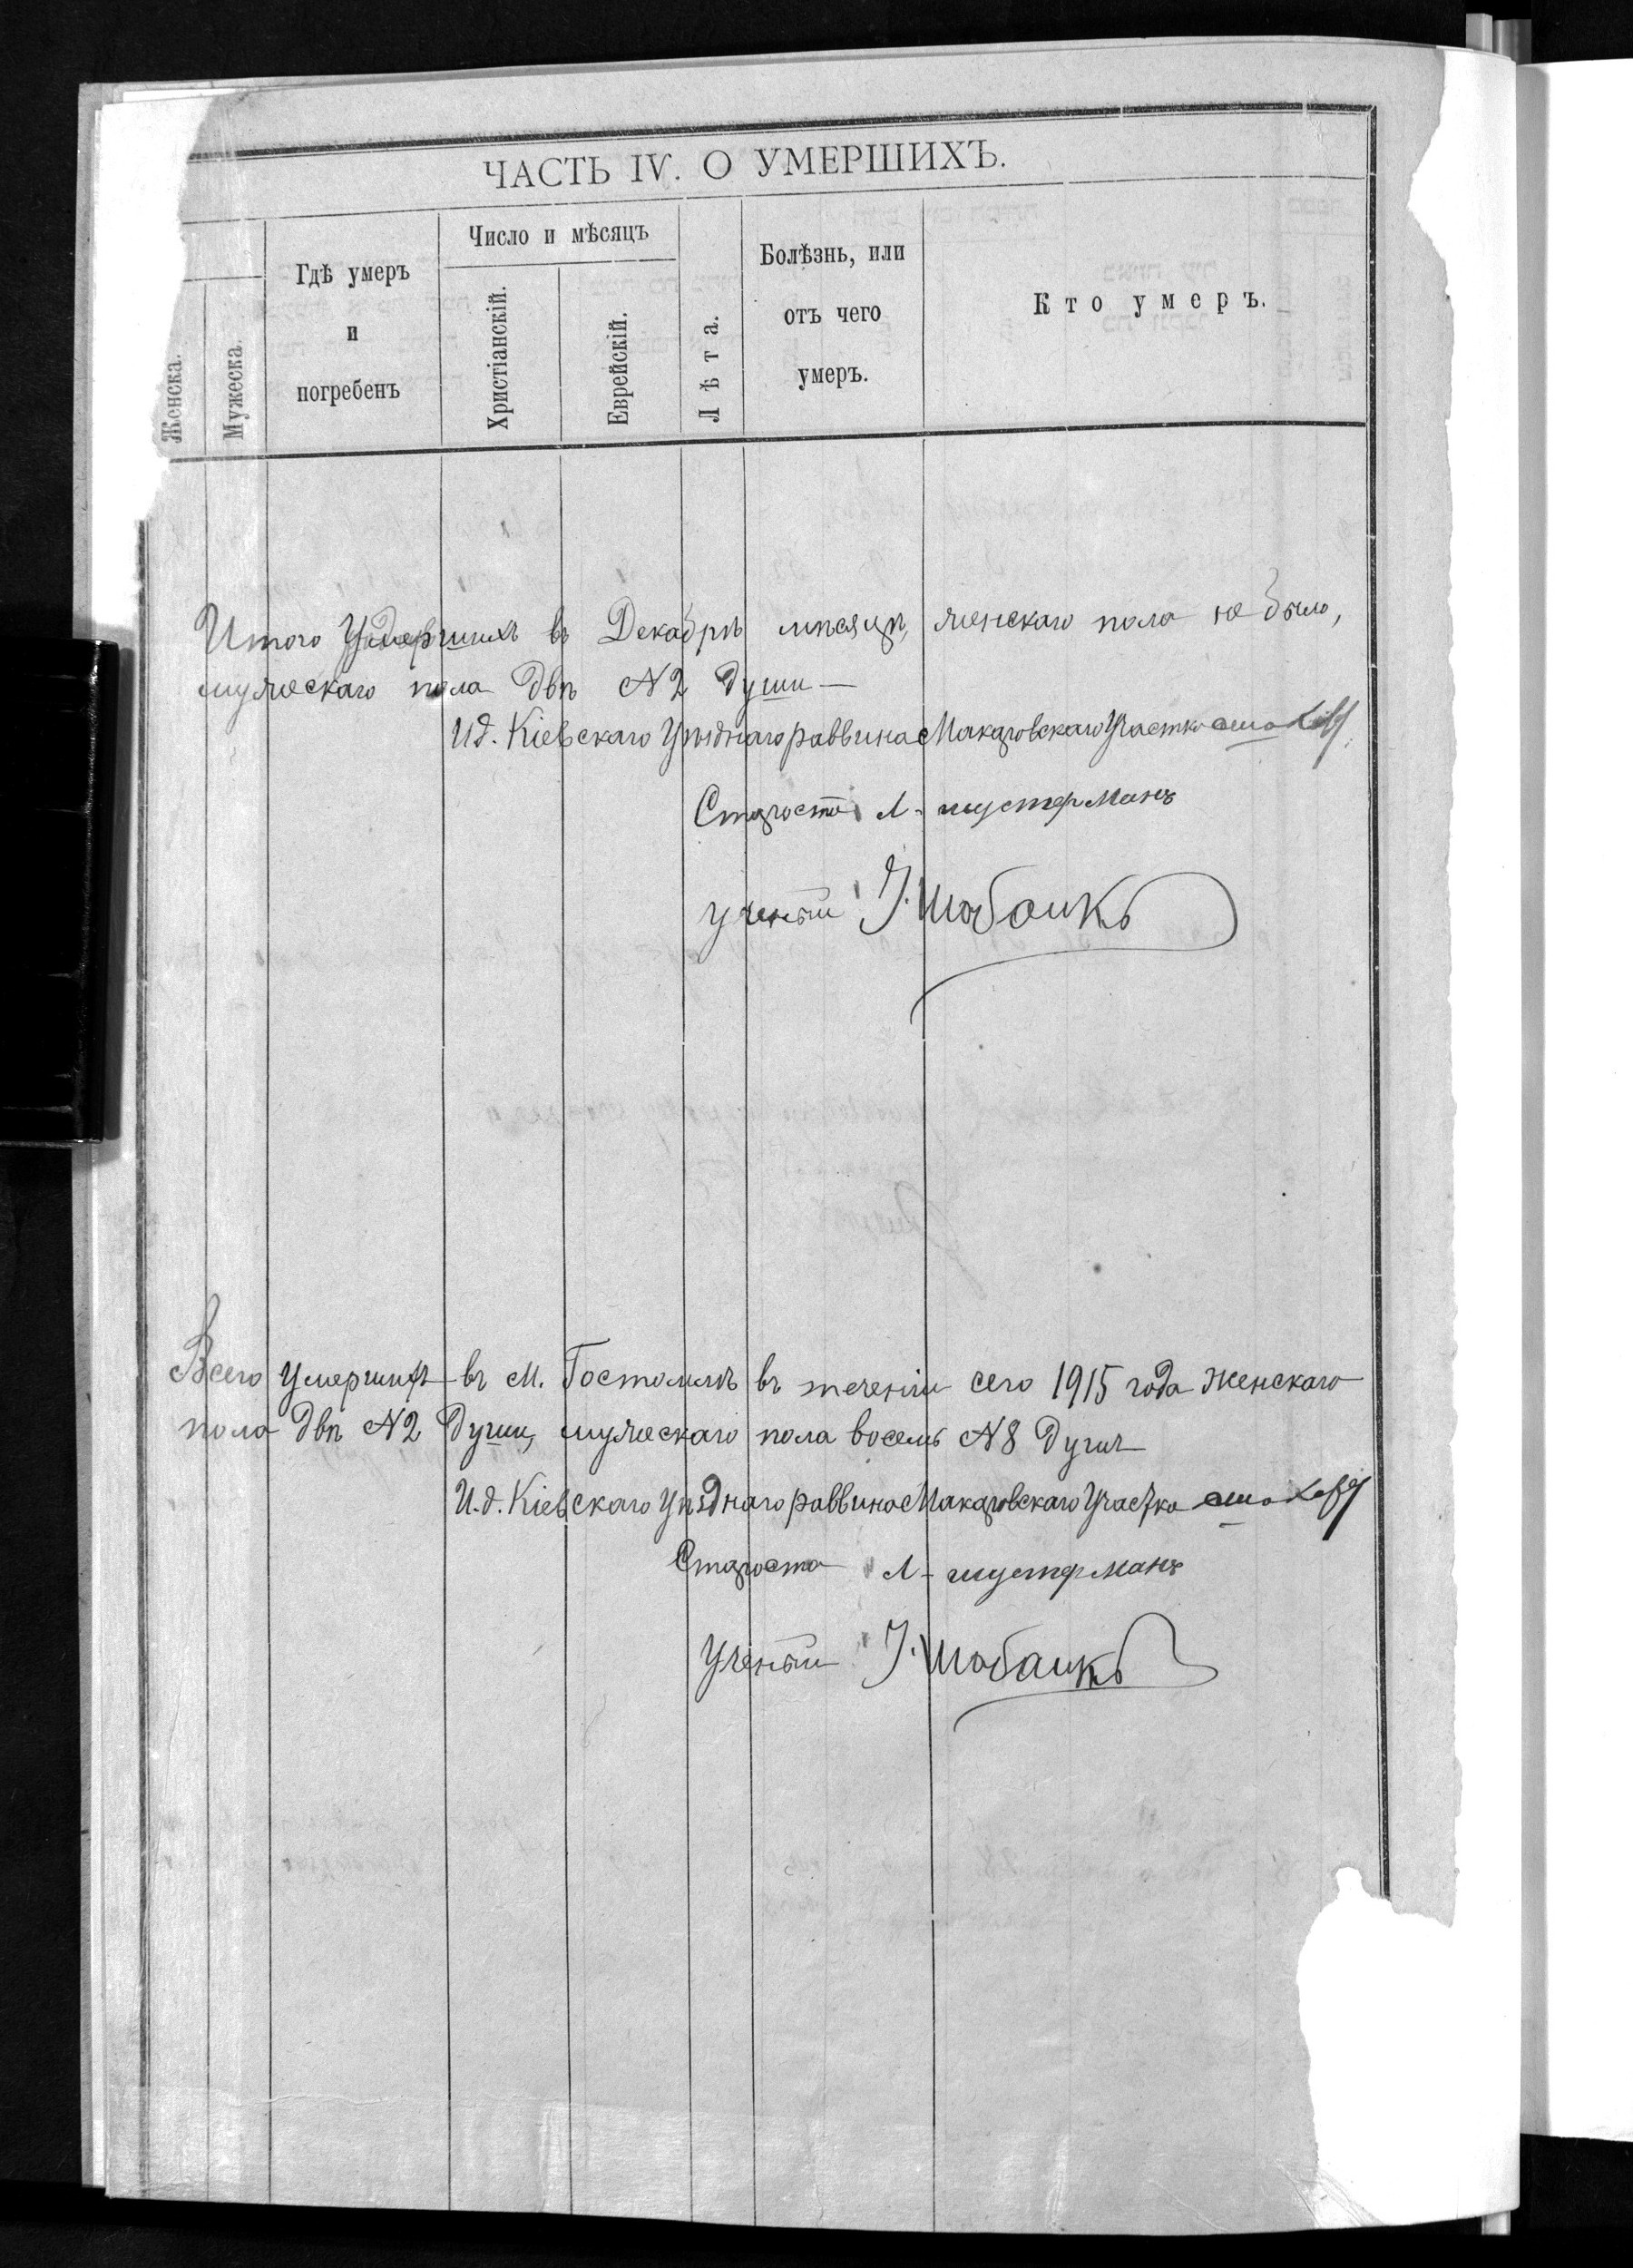 ЧАСТЬ IV. О УМЕРШИХЪ.
Женска.
Мужеска.
Гдѣ умеръ
и
погребенъ
Число и мѣсяцъ
Христіанскій.
Еврейскій.
Лѣта.
Болѣзнь, или
отъ чего
умеръ.
Кто умеръ.
Итого Умершихъ въ Декабрѣ мѣсяцѣ, женскаго пола не было,
мужескаго пола двѣ №2 души
И.д. Кіевскаго Уѣзднаго раввина Макаровскаго Участка
Староста Л. Шустерманъ
Ученый
Всего Умершихъ въ М. Гостомлѣ въ теченіи сего 1915 года Женскаго
пола двѣ №2 души, мужескаго пола восемь №8 душъ
И.д. Кіевскаго Уѣзднаго раввина Макаровскаго Участка
Староста Л. Шустерманъ
Ученый